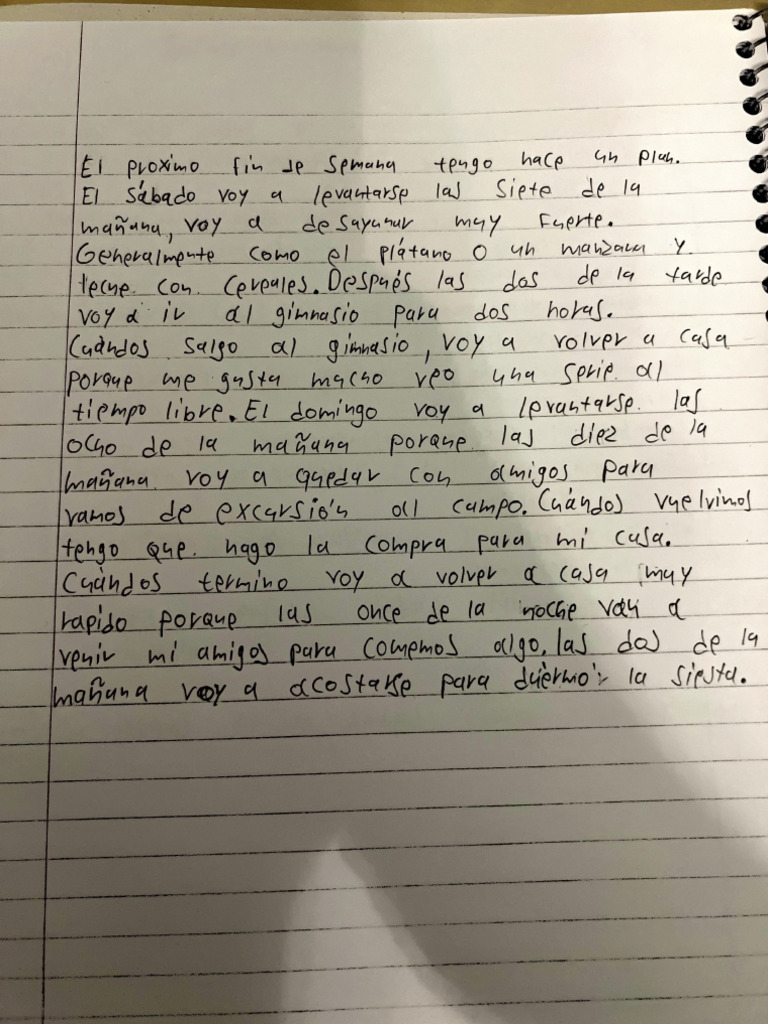 El proximo fin de semana tengo hace un plan.
El Sábado voy a levantarse las siete de la
mañana, voy a desayunar muy fuerte.
Generalmente como el plátano o un manzana y
leche con cereales. Después las dos de la tarde
voy a ir al gimnasio para dos horas.
Cuándos salgo al gimnasio, voy a volver a casa
porque me gusta macho veo una serie al
tiempo libre. El domingo voy a levantarse las
ocho de la mañana porque las diez de la
mañana voy a quedar con amigos para
vamos de excursión al campo. Cuándos vuelvimos
tengo que hago la compra para mi casa.
Cuándos termino voy a volver a casa muy
rapido porque las once de la noche van a
venir mi amigos para comemos algo. las dos de la
mañana voy a acostarse para duérmo la siesta.